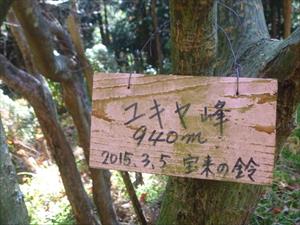 ユキヤ峰
940m
2015.3.5 宝来の鈴